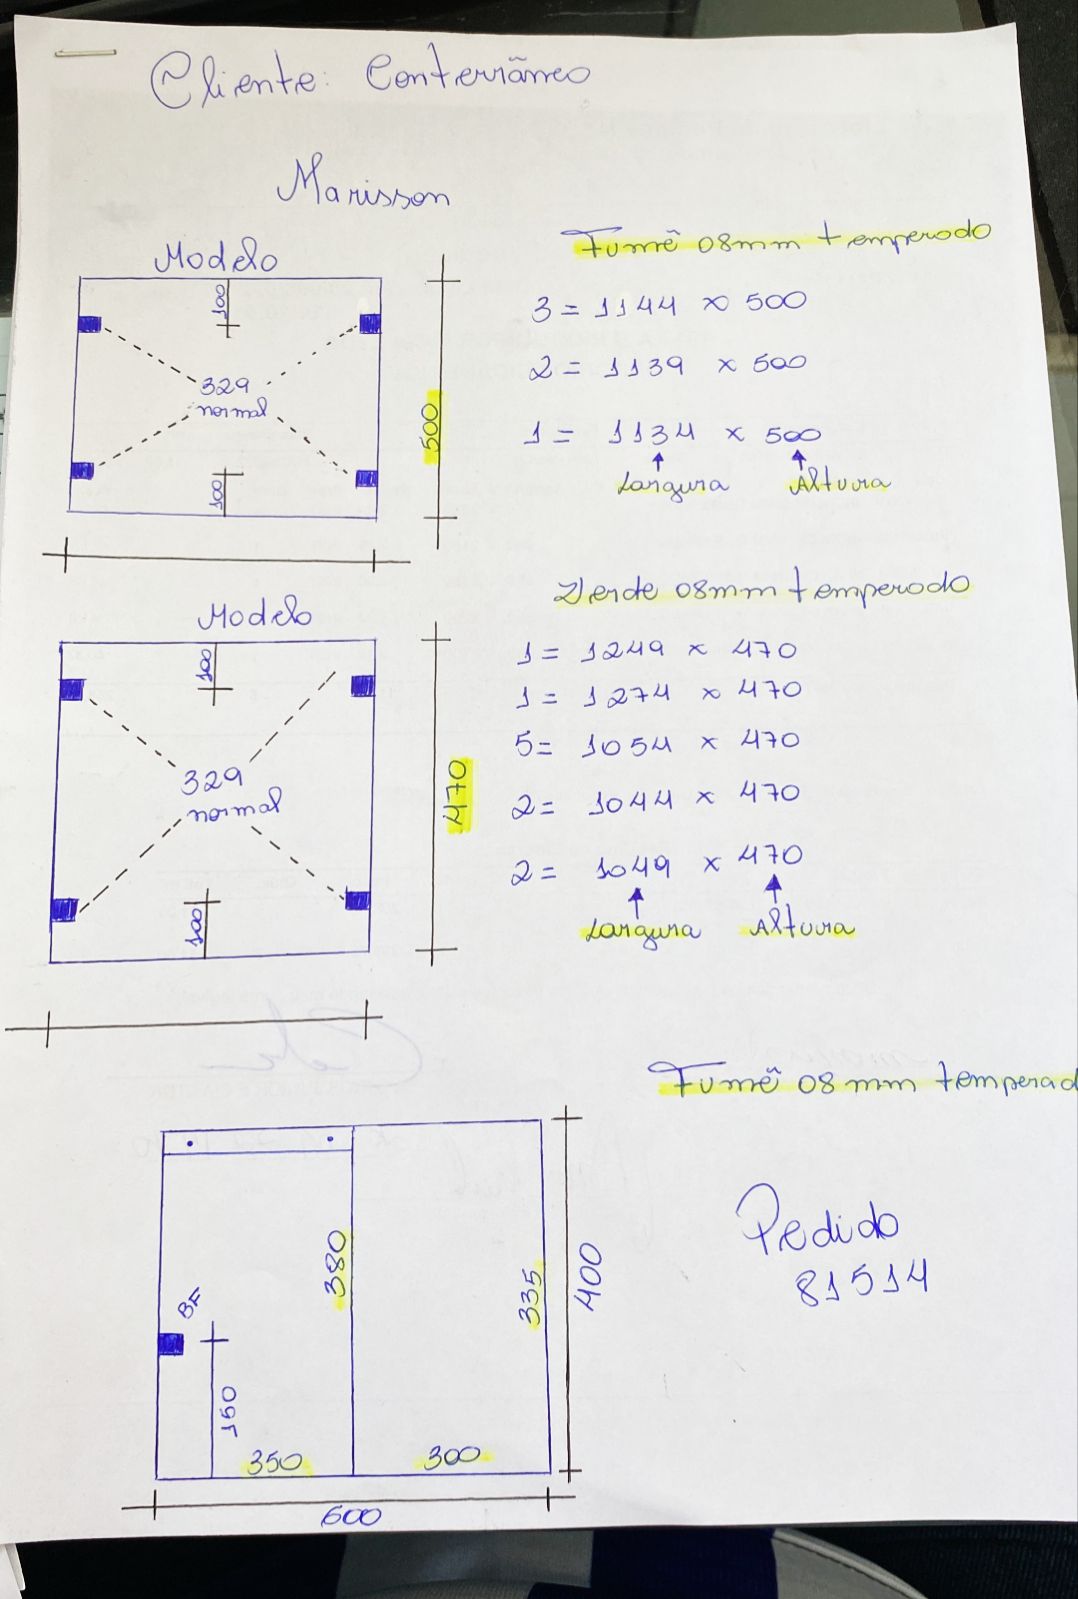 Cliente: Conterrâneo
Marisson
Modelo
100
329
normal
100
500
Fumê 08mm temperado
3 = 1144 x 500
2 = 1139 x 500
1 = 1134 x 500
Largura Altura
Modelo
100
329
normal
100
470
Verde 08mm temperado
1 = 1249 x 470
1 = 1274 x 470
5 = 1054 x 470
2 = 1044 x 470
2 = 1049 x 470
Largura Altura
Fumê 08mm temperad
380
335
400
BF
150
350
300
600
Pedido
81514